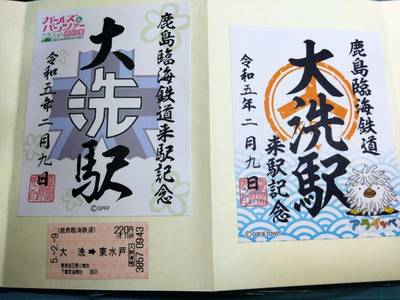 ガールズ&パンツァー
鹿島臨海鉄道来駅記念
大洗駅
令和五年二月九日
©GPFP
(鹿島臨海鉄道)
220円
大洗➡東水戸
5.-2.-9
3857 0943
鹿島臨海鉄道
来駅記念
大洗駅
令和五年二月九日
©oarai town
アライッペ